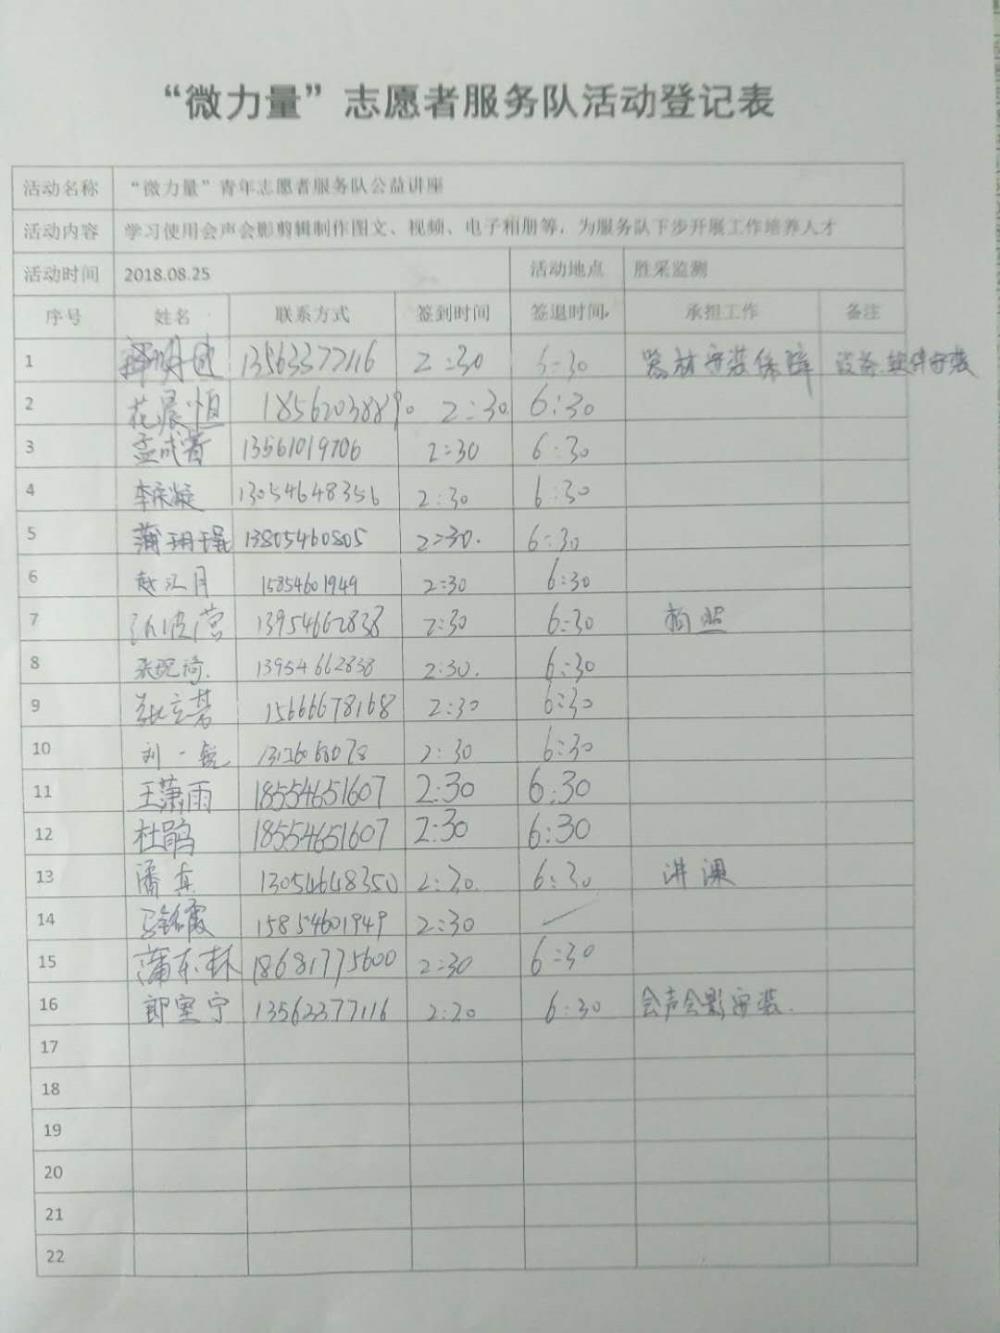 “微力量”志愿者服务队活动登记表
活动名称 “微力量”青年志愿者服务队公益讲座
活动内容 学习使用会声会影剪辑制作图文、视频、电子相册等，为服务队下步开展工作培养人才
活动时间 2018.08.25 活动地点 胜采监测
序号 姓名 联系方式 签到时间 签退时间 承担工作 备注
1 13563377116 2:30 :30 器材安装保障 设备.软件安装
2 花晨恒 18562038890 2:30 6:30
3 13561019706 2:30 6:30
4 13054648356 2:30 6:30
5 蒲玥 13805460805 2:30. 6:30
6 赵江月 15854601949 2:30 6:30
7 13954662838 2:30 6:30 拍照
8 13954662838 2:30. 6:30
9 张立 15666678168 2:30 6:30
10 刘一 13126068078 2:30 6:30
11 王萧雨 18554651607 2:30 6:30
12 杜鹃 18554651607 2:30 6:30
13 潘真 13054648350 2:30. 6:30 讲课
14 霞 15854601949 2:30
15 蒲东林 18681775600 2:30 6:30
16 郎宝宁 13563377116 2:20 6:30 会声会影安装.
17
18
19
20
21
22